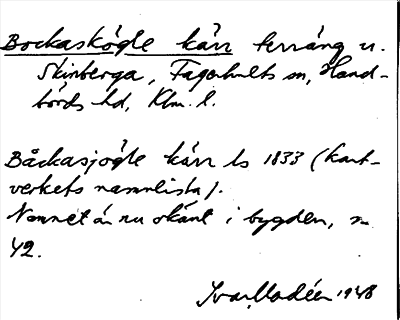 Bockaskögle kärr terräng u.
Skinberga, Fagerhults sn, Hand-
börds hd, Klm. l.
Båckasjögle kärr ls 1833 (Kart-
verkets namnlista).
Namnet är nu okänt i bygden, n
42.
Ivar Modéer 1948